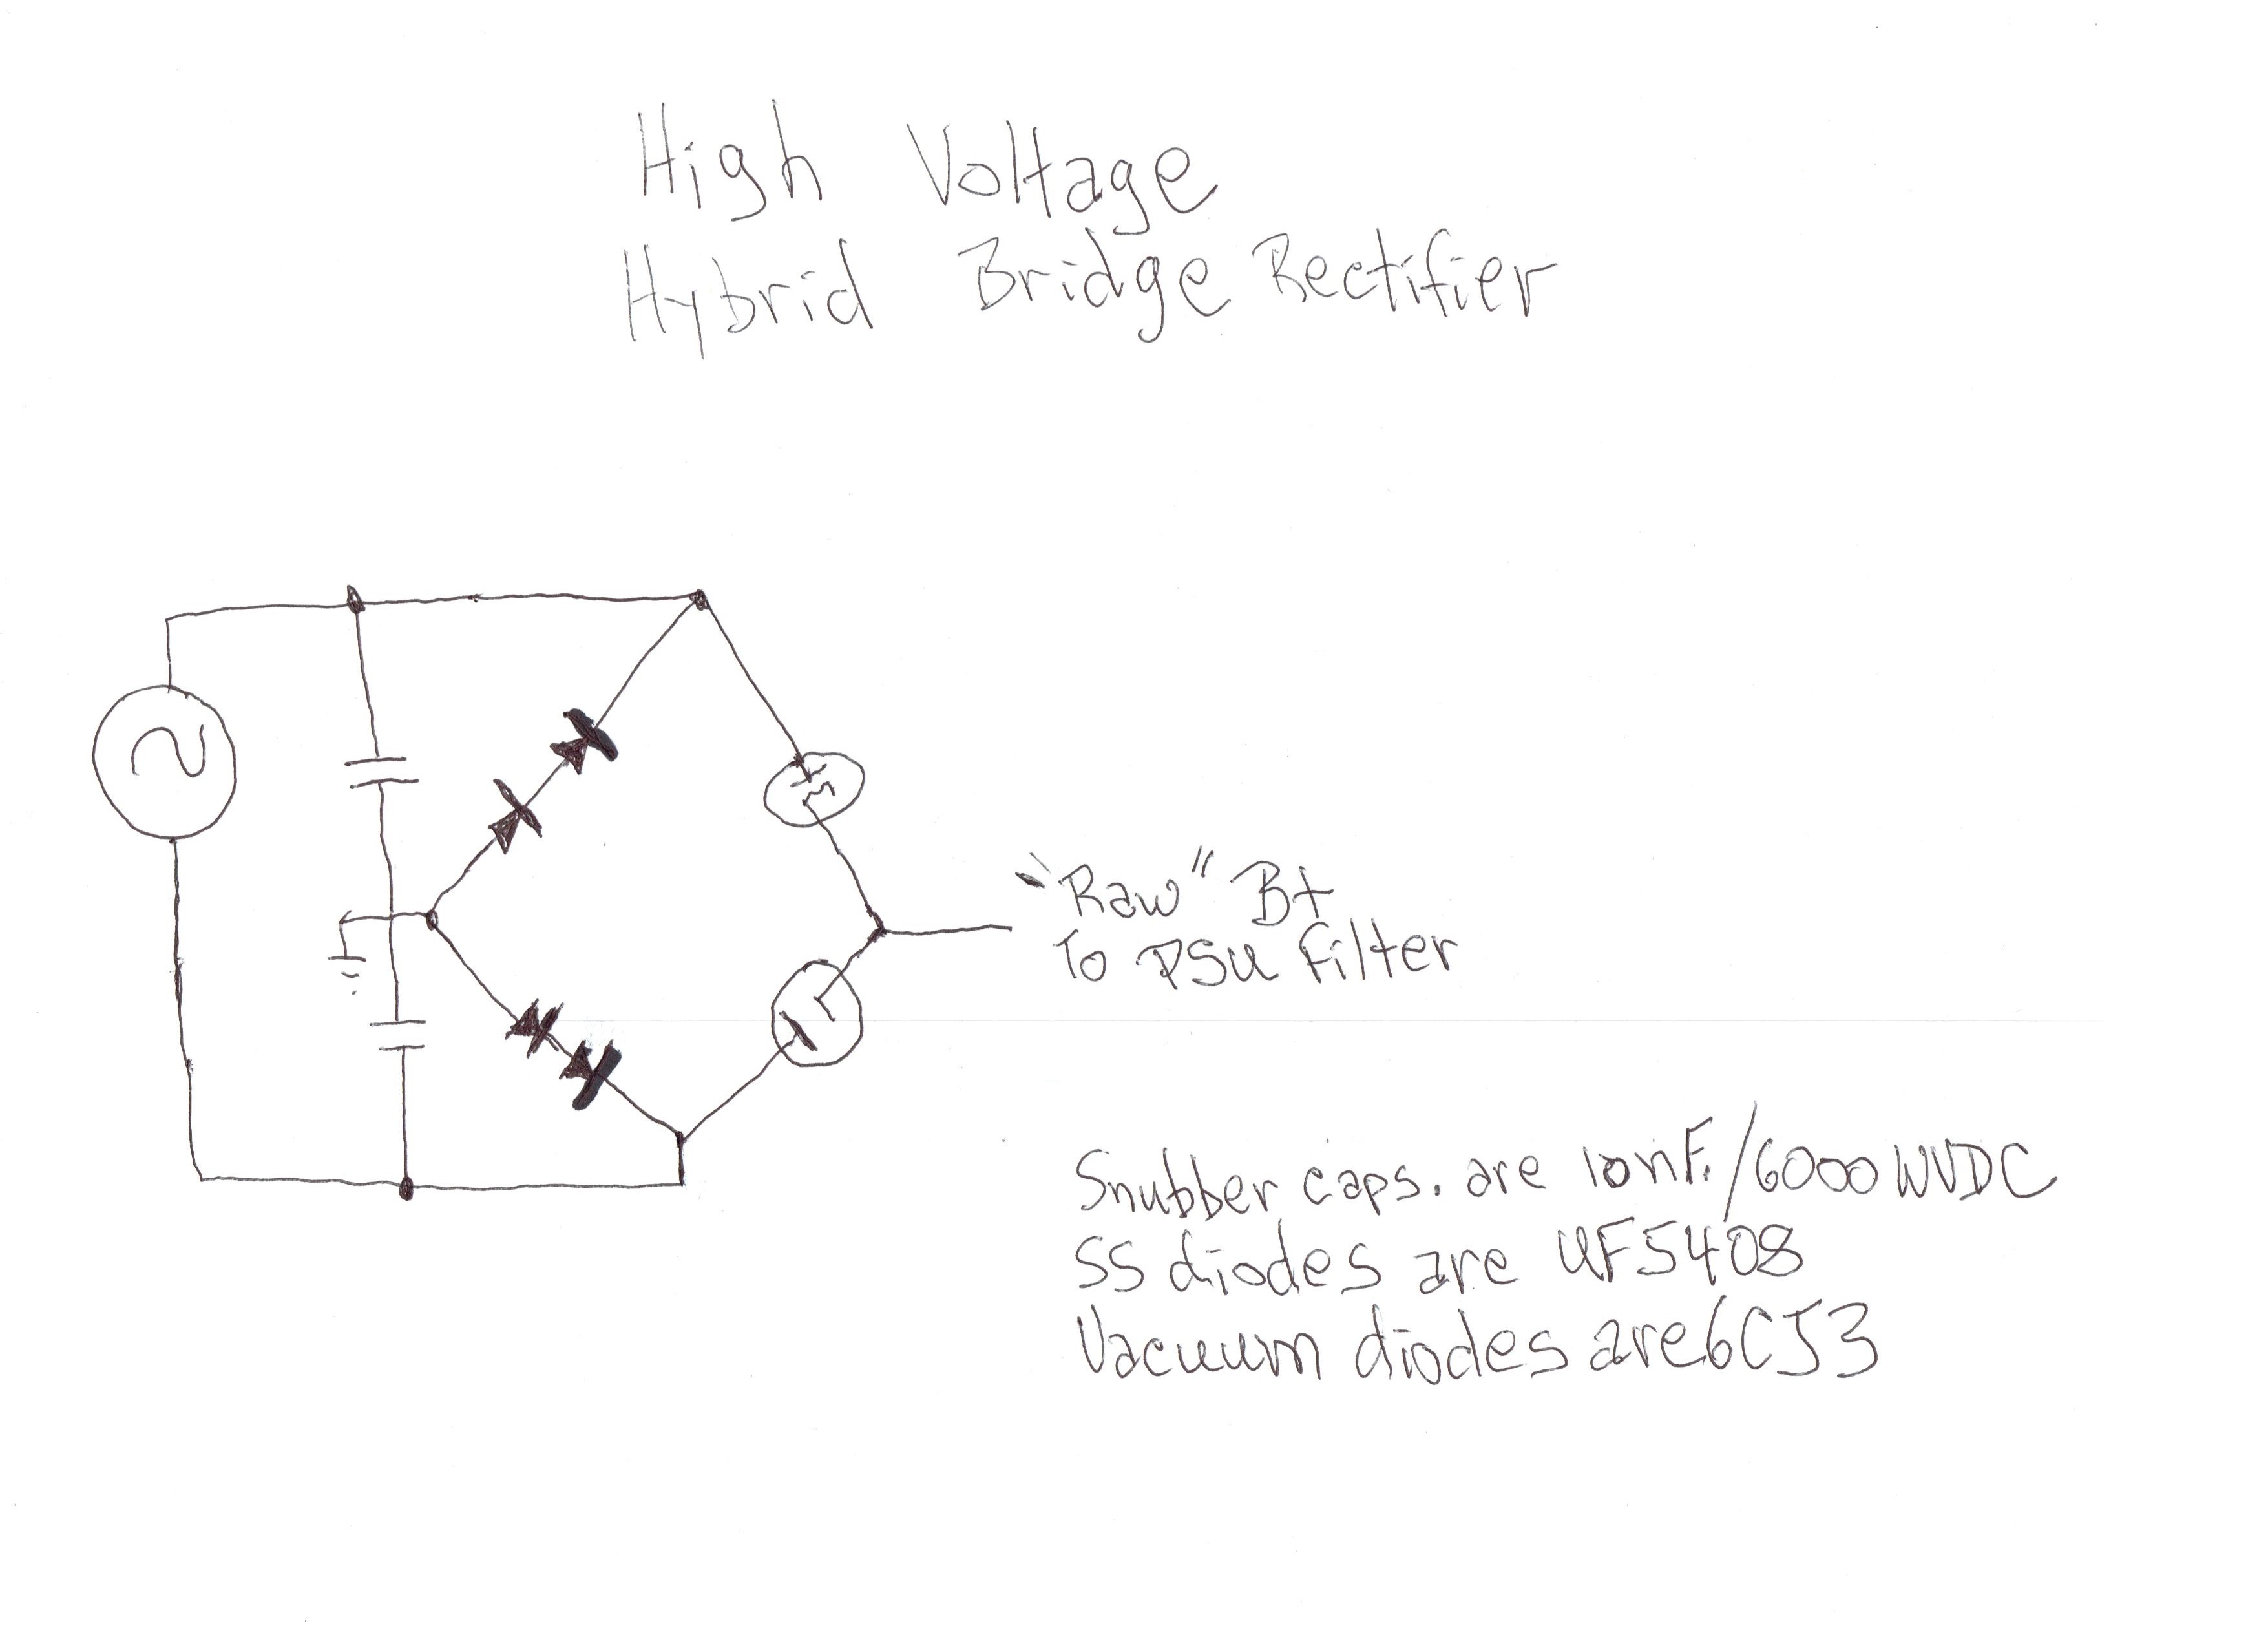 High Voltage
Hybrid Bridge Rectifier
"Raw" B+
To PSU filter
Snubber caps. are 10nF./6000 WVDC
SS diodes are UF5408
Vacuum diodes are 6CJ3